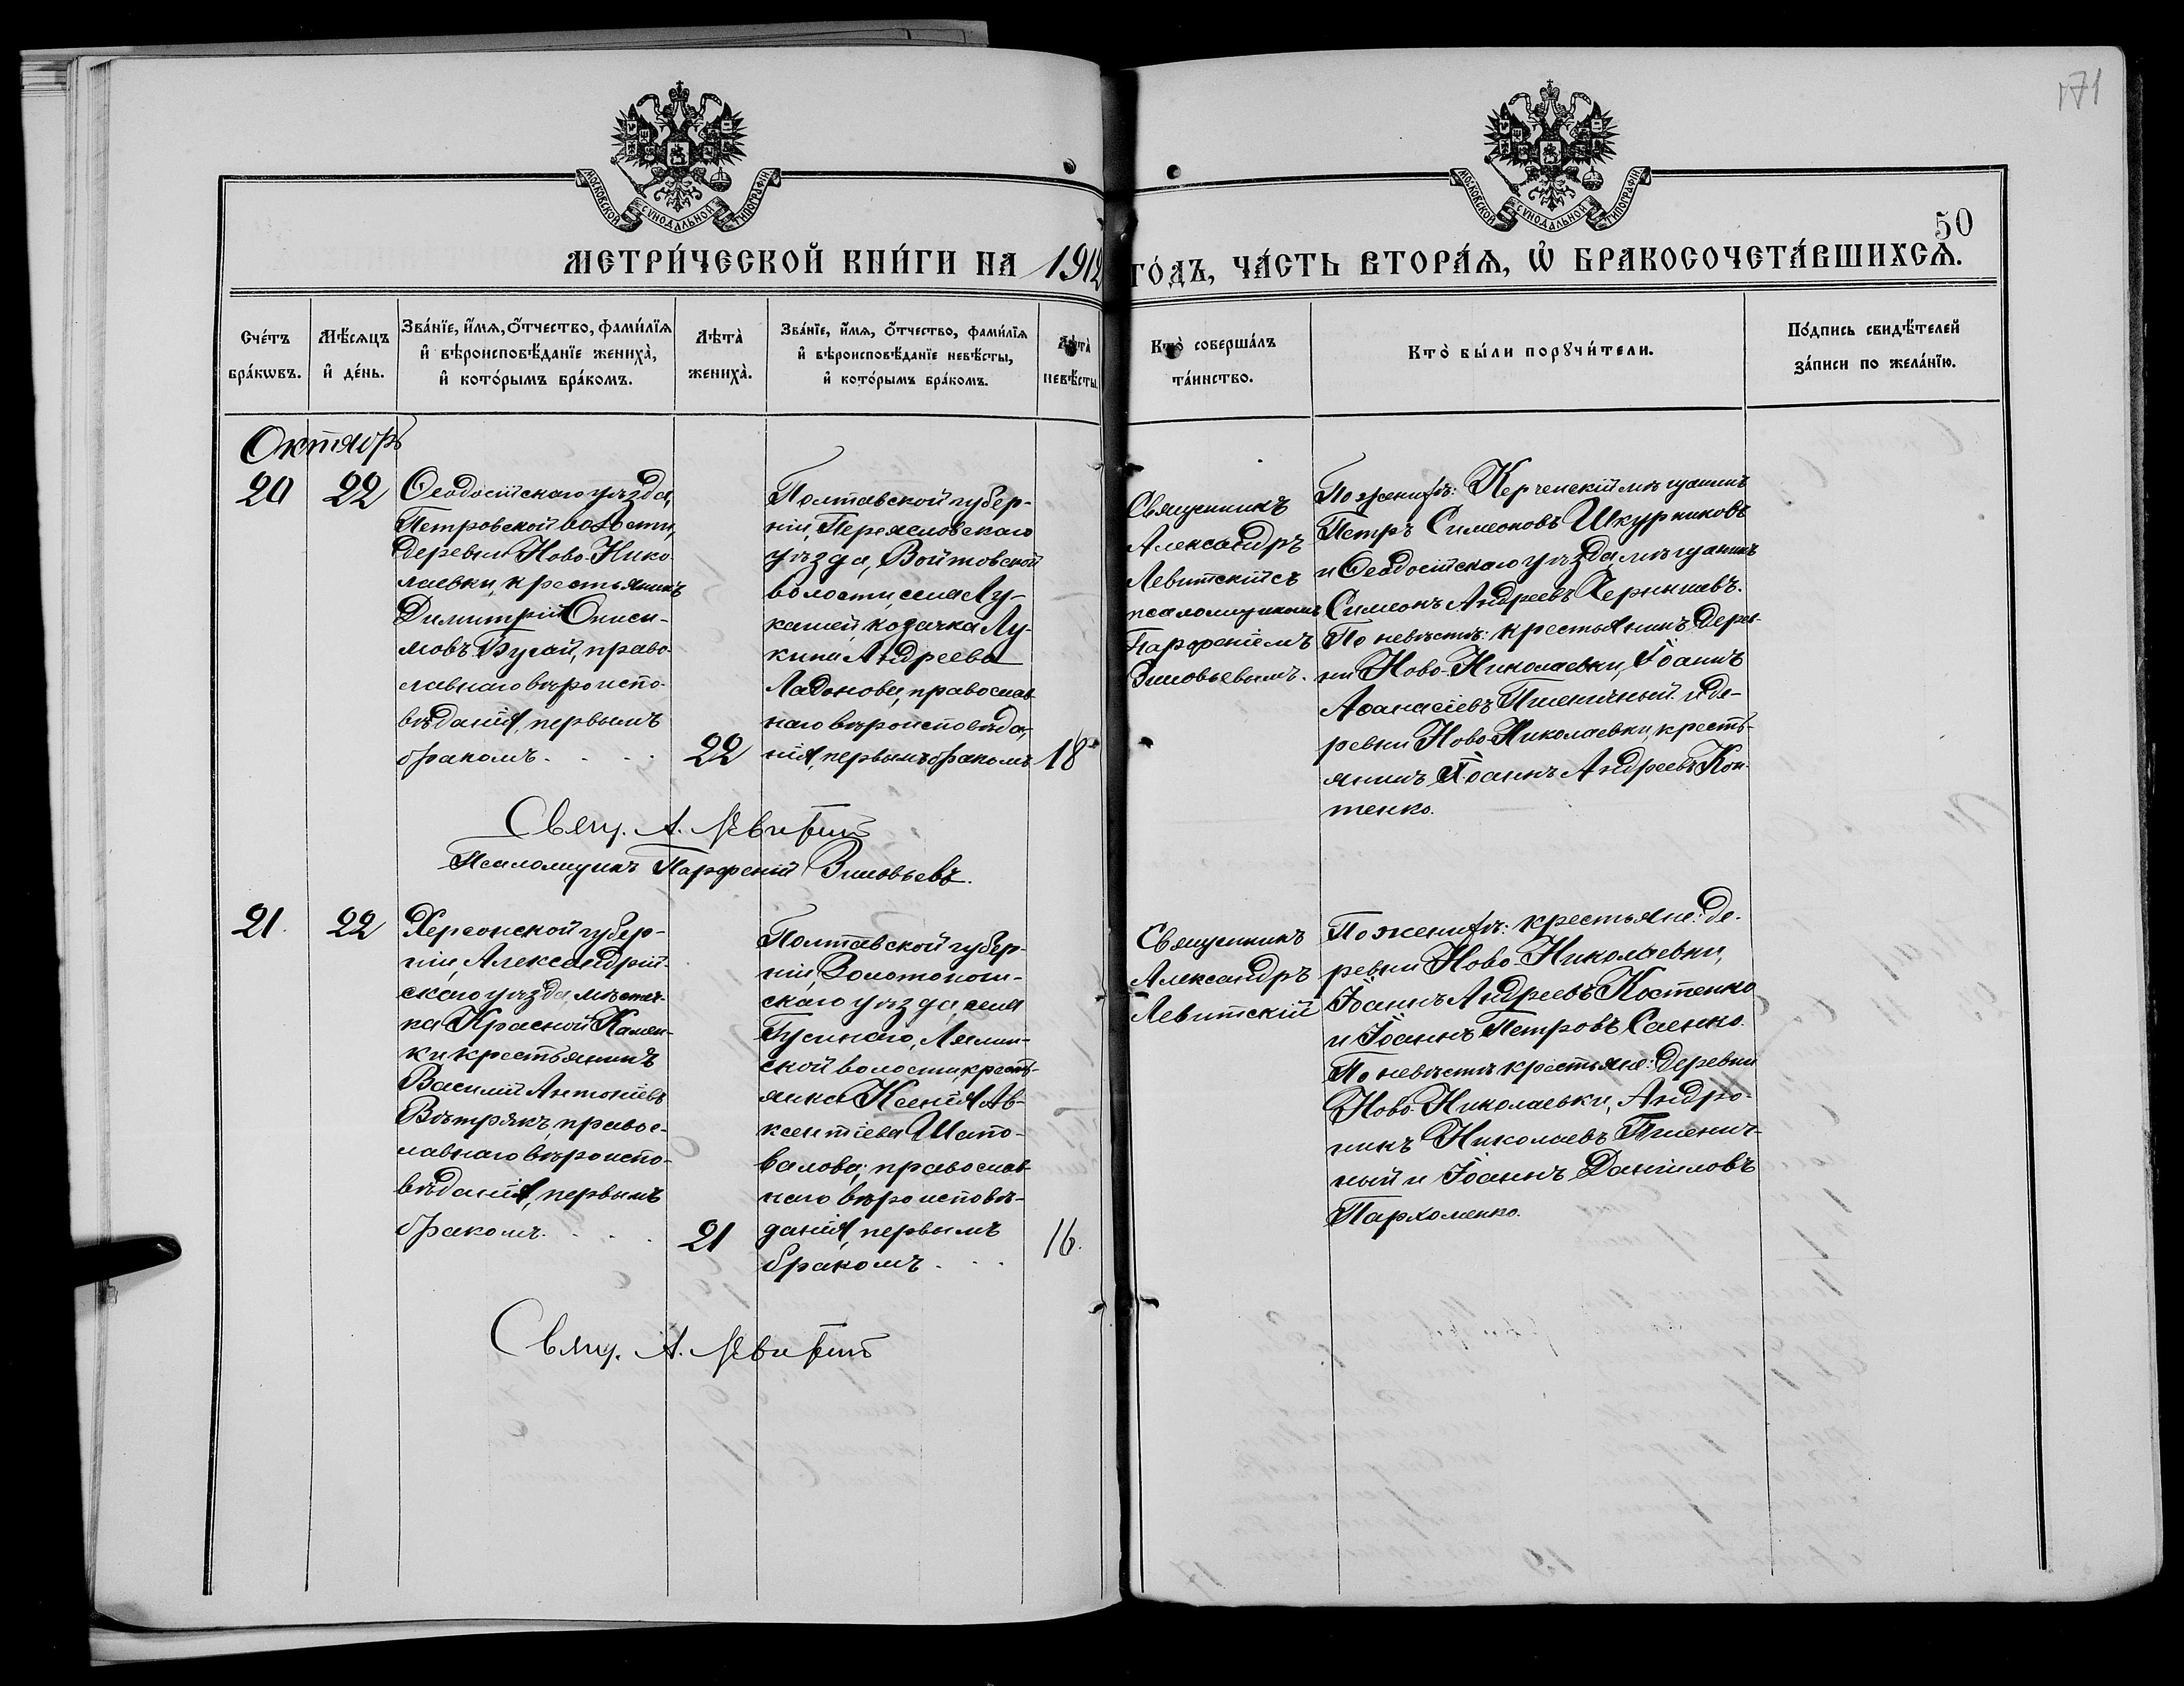 171
50
МОСКОВСКОЙ СѴНОДАЛЬНОЙ ТИПОГРАФІИ
МОСКОВСКОЙ СѴНОДАЛЬНОЙ ТИПОГРАФІИ
МЕТРИ́ЧЕСКОЙ КНИ́ГИ НА 1912 ГО́ДЪ, ЧА́СТЬ ВТОРА́Ѧ, Ѡ҆ БРАКОСОЧЕТА́ВШИХСѦ.
Сче́тъ
бра́кѡвъ.
Мѣ́сѧцъ
и҆ де́нь.
Зва́нїе, и҆́мѧ, ѻ҆́тчество, фами́лїѧ
и҆ вѣроисповѣ́данїе жениха̀,
и҆ кото́рымъ бра́комъ.
Лѣта̀
жениха̀.
Зва́нїе, и҆́мѧ, ѻ҆́тчество, фами́лїѧ
и҆ вѣроисповѣ́данїе невѣ́сты,
и҆ кото́рымъ бра́комъ.
Лѣта̀
невѣ́сты.
Кто̀ соверша́лъ
та́инство.
Кто̀ бы́ли порꙋчи́тели.
По́дпись свидѣ́телей
за́писи по жела́нїю.
Октябрь
20
22
Ѳеодосійскаго уѣзда,
Петровской волости,
деревни Ново-Нико-
лаевки, крестьянинъ
Димитрій Ониси-
мовъ Бугай, право-
славнаго вѣроиспо-
вѣданія, первымъ
бракомъ. . . .
22
Полтавской губер-
ніи, Переяславскаго
уѣзда, Войтовской
волости, села Лу-
кашей, козачка Лу-
кина Андреева
Ладонова, православ-
наго вѣроисповѣда-
нія, первымъ бракомъ
18
Священникъ
Александръ
Левитскій съ
псаломщикомъ
Парфеніемъ
Зиновьевымъ.
По женихѣ: Керченскій мѣщанинъ
Петръ Симеоновъ Шкурниковъ
и Ѳеодосійскаго уѣзда мѣщанинъ
Симеонъ Андреевъ Чернышевъ.
По невѣстѣ: крестьянинъ дерев-
ни Ново-Николаевки, Іоаннъ
Аѳанасіевъ Пшеничный и де-
ревни Ново-Николаевки, кресть-
янинъ Іоаннъ Андреевъ Кон-
тенко.
Свящ. А. Левитскій
Псаломщикъ Парфеній Зиновьевъ.
21.
22
Херсонской губер-
ніи, Александрій-
скаго уѣзда, мѣстеч-
ка Красной Камен-
ки крестьянинъ
Василій Антоніевъ
Вѣтрякъ, правос-
лавнаго вѣроиспо-
вѣданія, первымъ
бракомъ. . . .
21
Полтавской губер-
ніи, Золотонош-
скаго уѣзда, села
Гусинаго, Лялин-
ской волости, кресть-
янка Ксенія Ав-
ксентіева Шапо-
валова, православ-
наго вѣроисповѣ-
данія, первымъ
бракомъ. . .
16.
Священникъ
Александръ
Левитскій
По женихѣ: крестьяне: де-
ревни Ново-Николаевки,
Іоаннъ Андреевъ Костенко
и Іоаннъ Петровъ Саенко.
По невѣстѣ крестьяне: деревни
Ново-Николаевки, Андро-
никъ Николаевъ Пшенич-
ный и Іоаннъ Даніиловъ
Пархоменко.
Свящ. А. Левитскій